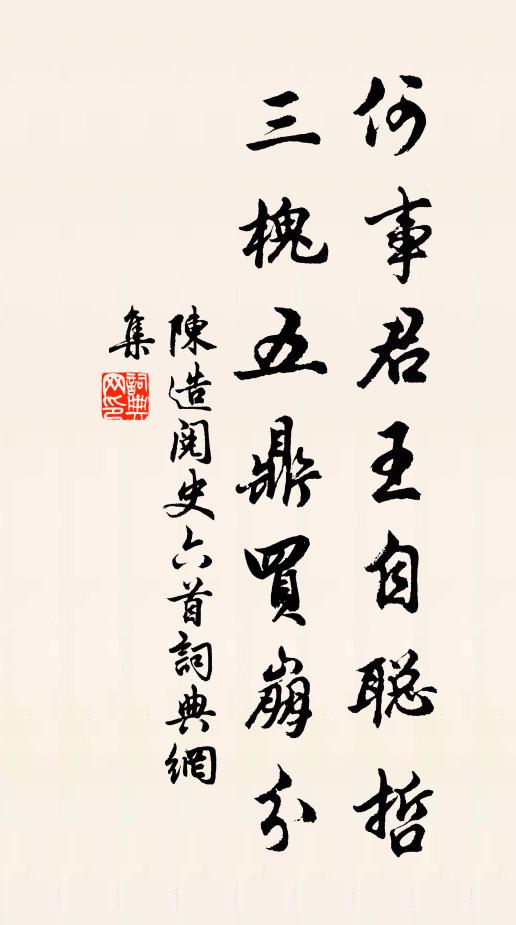 何事君王自聪哲
三槐五鼎買崩分
陳造閱史六首詞典網
集
詞典网印